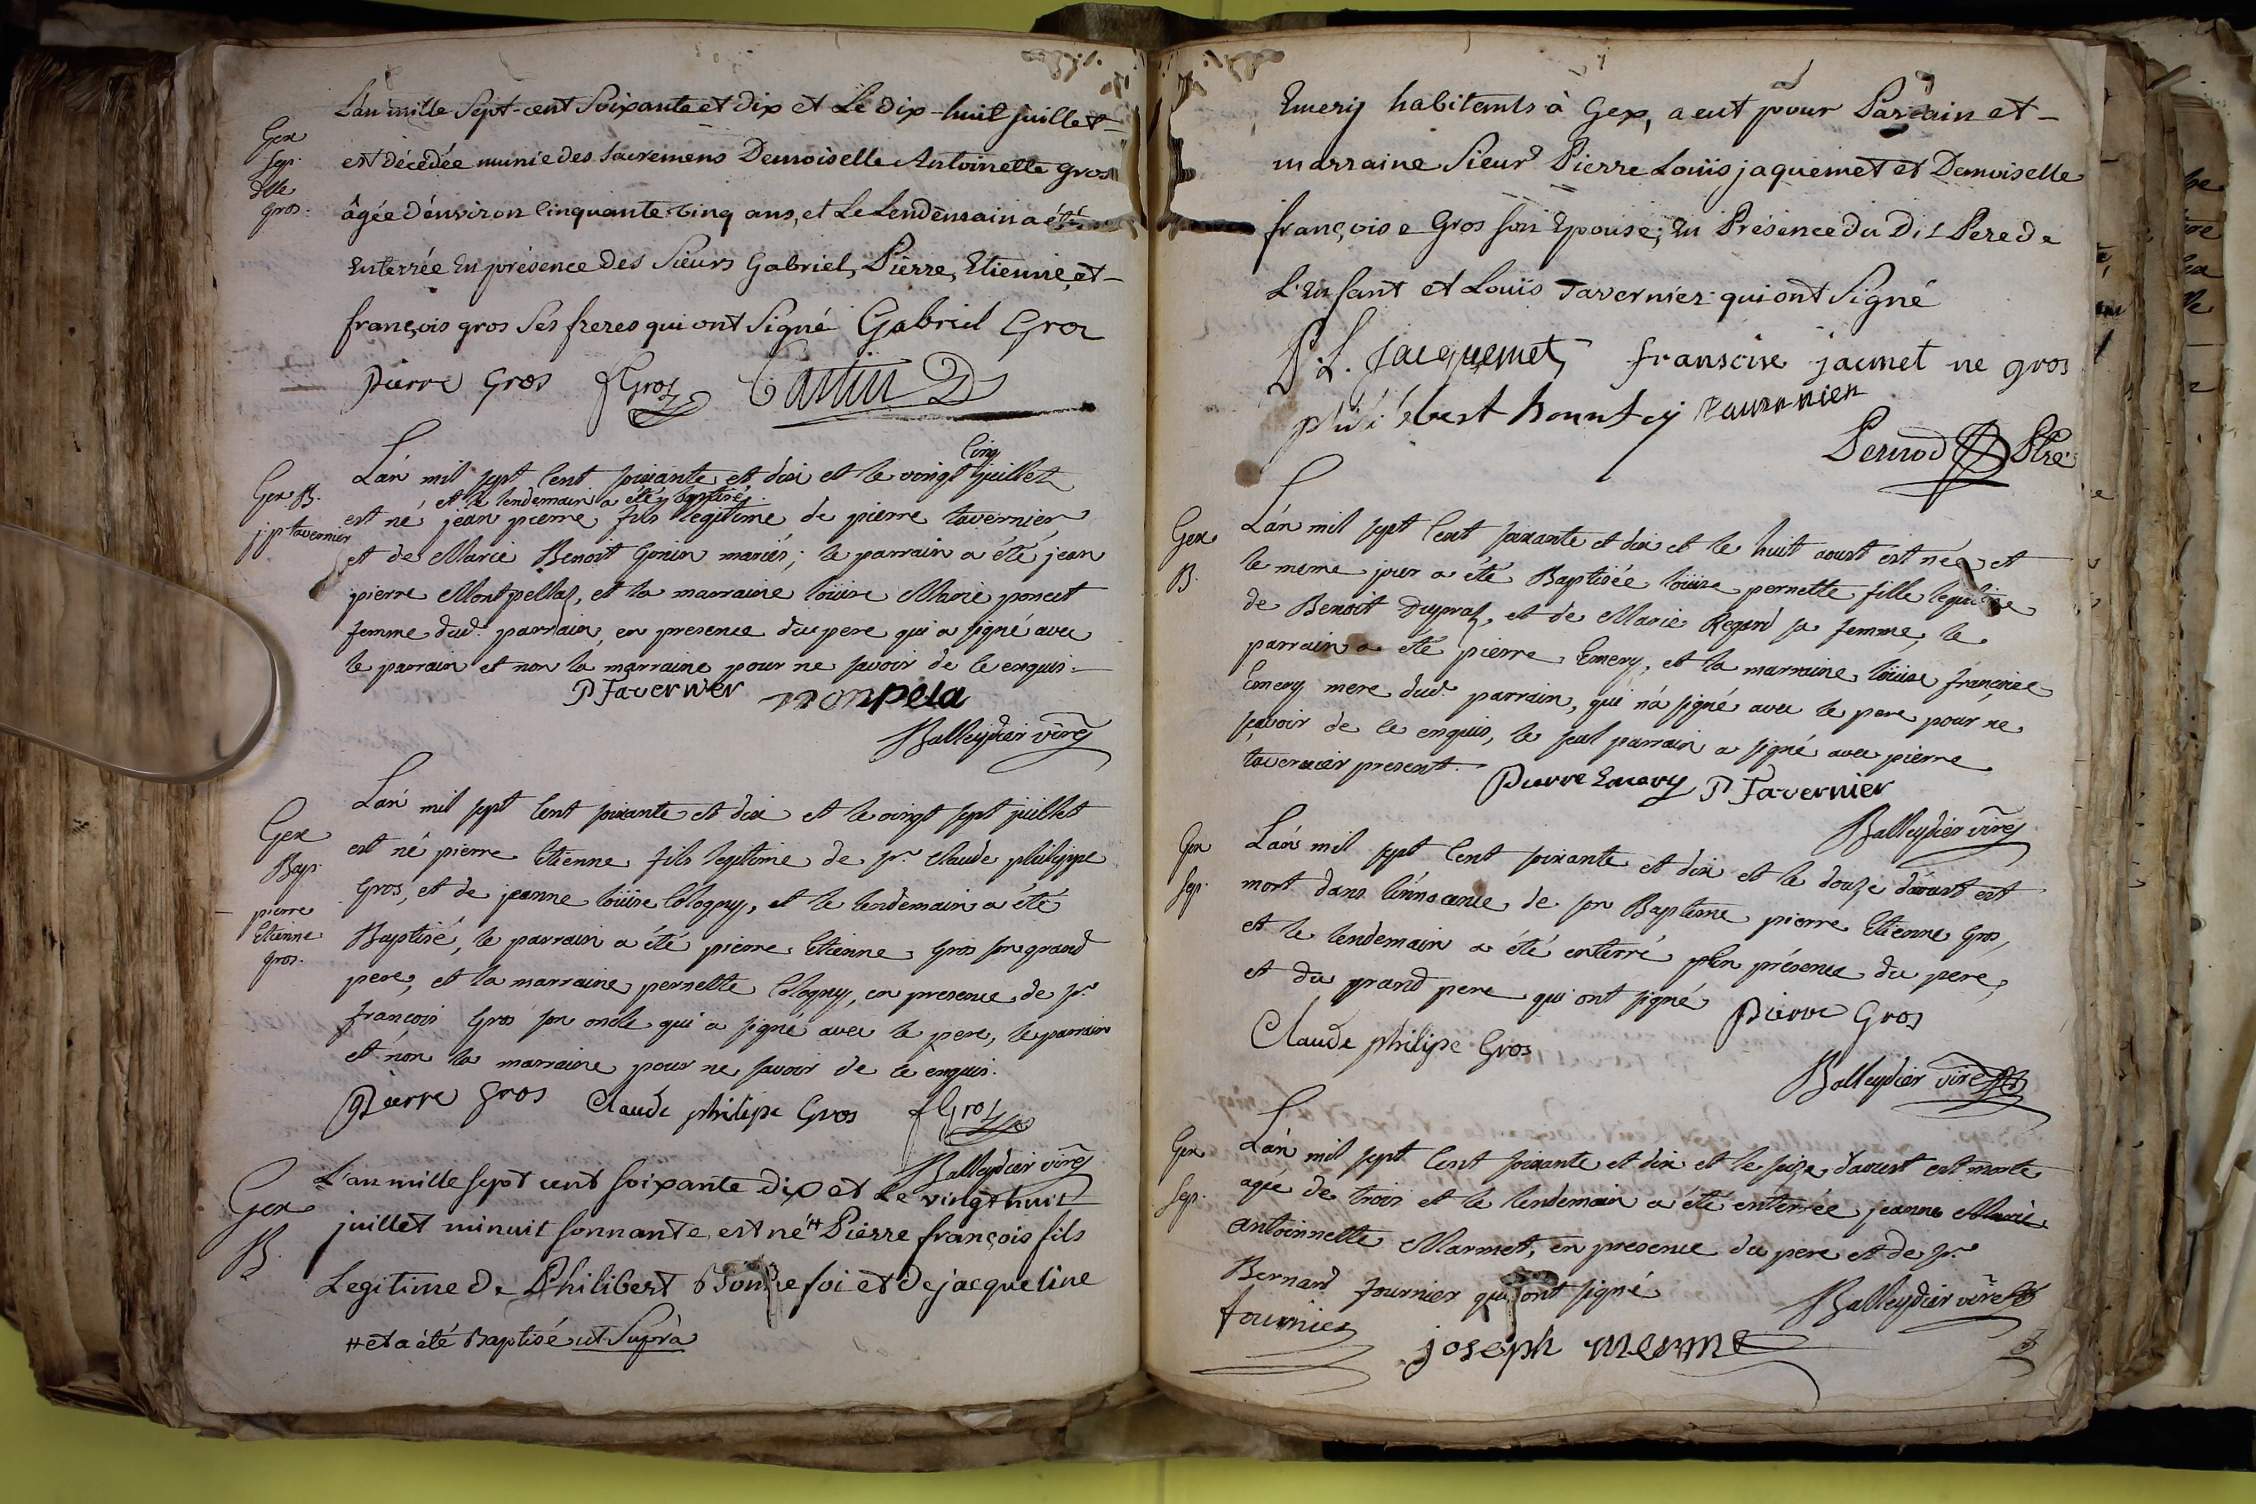 L'an mille Sept-cent Soixante et dix et Le dix-huit juillet
Gex
Sep.
Dlle
Gros.
est décédée munie des Sacremens Demoiselle Antoinette Gros
âgée d'environ Cinquante-Cinq ans, et Le Lendemain a été
Enterrée En présence des Sieurs Gabriel, Pierre, Etienne, et
françois gros Ses freres qui ont Signé Gabriel Gros
Pierre Gros fGros
Gex B.
j:p tavernier
L'an mil sept Cent soixante et dix et le vingt Cinq juillet
est né et le lendemain a été baptisé jean pierre fils legitime de pierre tavernier
et de Marie Benoit Gonin mariés; le parrain a été jean
pierre Montpellaz, et la marraine loüise Marie poncet
femme dud. parrain, en presence du pere qui a signé avec
le parrain et non la marraine pour ne savoir de ce enquis.
P Tavernier monpela
Balleydier vire
Gex
Bap.
pierre
Etienne
gros.
L'an mil sept Cent soixante et dix et le vingt sept juillet
est né pierre Etienne fils legitime de sr. Claude philippe
Gros, et de jeanne loüise Cologny, et le lendemain a été
Baptisé, le parrain a été pierre Etienne gros son grand
pere, et la marraine pernette Cologny, en presence de sr.
françois Gros son oncle qui a signé avec le pere, le parrain
et non la marraine pour ne savoir de ce enquis.
Pierre Gros Claude philipe Gros fGros
Balleydier vire
Gex
B.
L'an mille sept cent soixante dix et Le vingt huit
juillet minuit sonnante, est né # Pierre françois fils
Legitime de Philibert Bonnefoi et de jacqueline
# et a été Baptisé ut Suprà
Emery habitants à Gex, a eut pour Parrain et
marraine Sieur Pierre Loüis jaquemet et Demoiselle
françoise Gros son Epouse; En Présence du Dit Pere de
L'Enfant et Loüis Tavernier qui ont Signé
P. L. Jacquemet fransoise jacmet ne gros
tavernier
Pernod Ptre
Gex
B.
L'an mil sept Cent soixante et dix et le huit aoust est née et
le meme jour a été Baptisée loüise pernette fille legitime
de Benoit Dupraz, et de Marie Regard sa femme, le
parrain a été pierre Emery, et la marraine loüise françoise
Emery mere dud. parrain, qui n'a signé avec le pere pour ne
savoir de ce enquis, le seul parrain a signé avec pierre
tavernier present. Pierre Emery P Tavernier
Balleydier vire
Gex
Sep.
L'an mil sept Cent soixante et dix et le douze d'aoust est
mort dans l'innocence de son Baptême pierre Etienne Gros,
et le lendemain a été enterré en présence du pere,
et du grand pere qui ont signé Pierre Gros
Claude philipe Gros
Balleydier vire
Gex
Sep.
L'an mil sept Cent soixante et dix et le seize d'aoust est morte
agée de trois et le lendemain a été enterrée jeanne Marie
antoinnette Marmet, en presence du pere et de sr.
Bernard fournier qui ont signé
Balleydier vire
fournier joseph merme